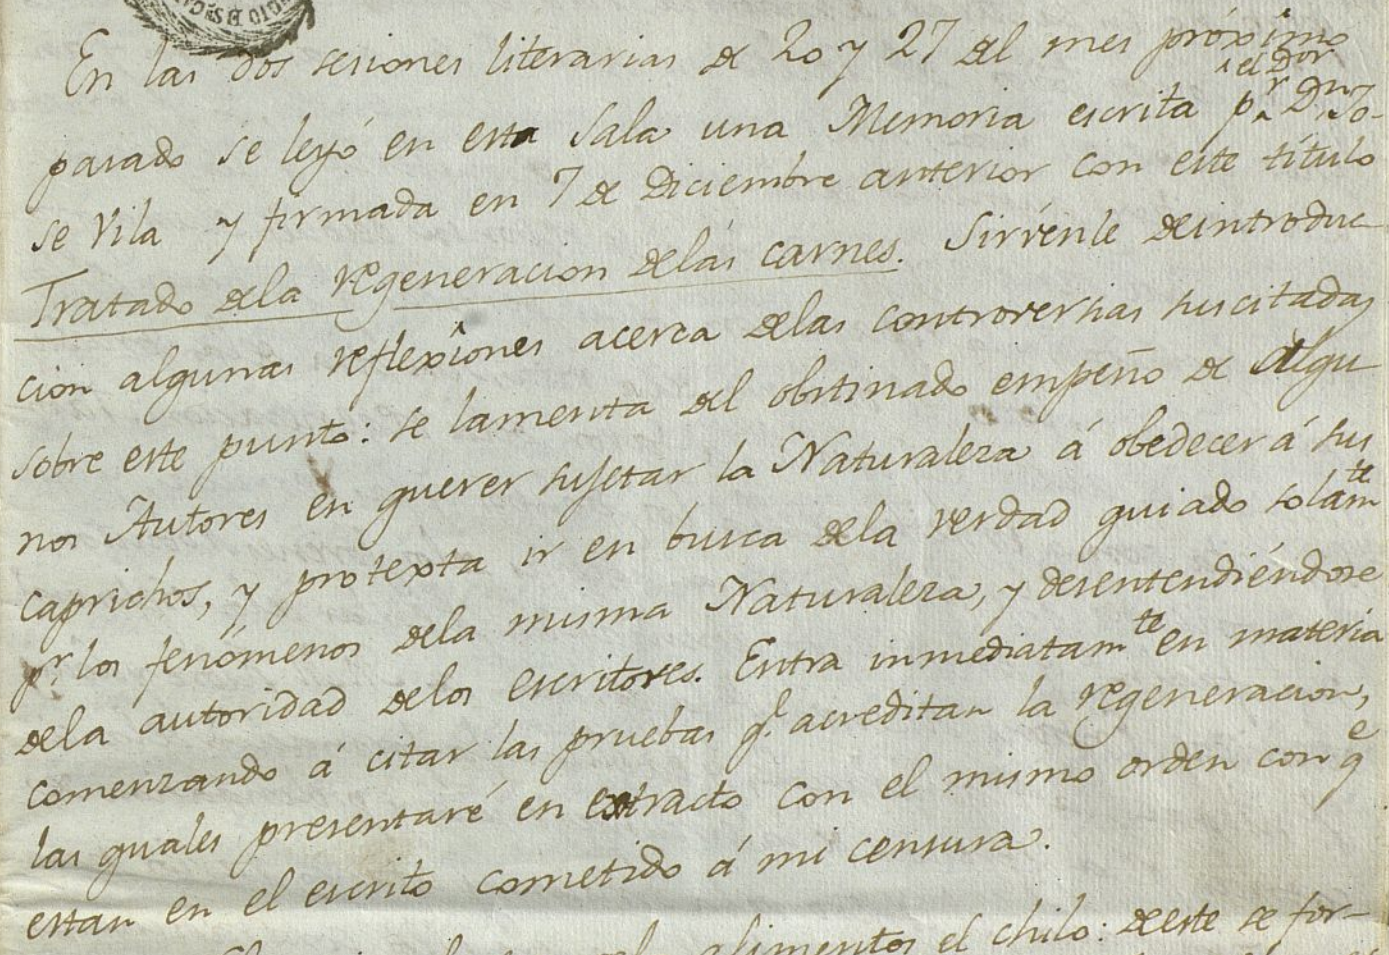 En las dos sesiones literarias de 20 y 27 del mes próximo
^el Dor
pasado se leyó en esta Sala una Memoria escrita pr. Dn. Jo-
se Vila y firmada en 7 de Diciembre anterior con este título
Tratado dela regeneracion delas carnes. Sirvenle deintroduc-
cion algunas reflexîones acerca delas controversias suscitadas
sobre este punto: se lamenta del obstinado empeño de algu-
nos Autores en querer sujetar la Naturaleza á obedecer á sus
caprichos, y protexta ir en busca dela verdad guiado solamte
pr. los fenómenos dela misma Naturaleza, y desentendiéndose
dela autoridad delos escritores. Entra inmediatamte en materia
comenzando á citar las pruebas q.e acreditan la regeneracion,
las quales presentaré en extracto con el mismo orden con qe
estan en el escrito cometido á mi censura.
alimentos el chilo: deeste se for-